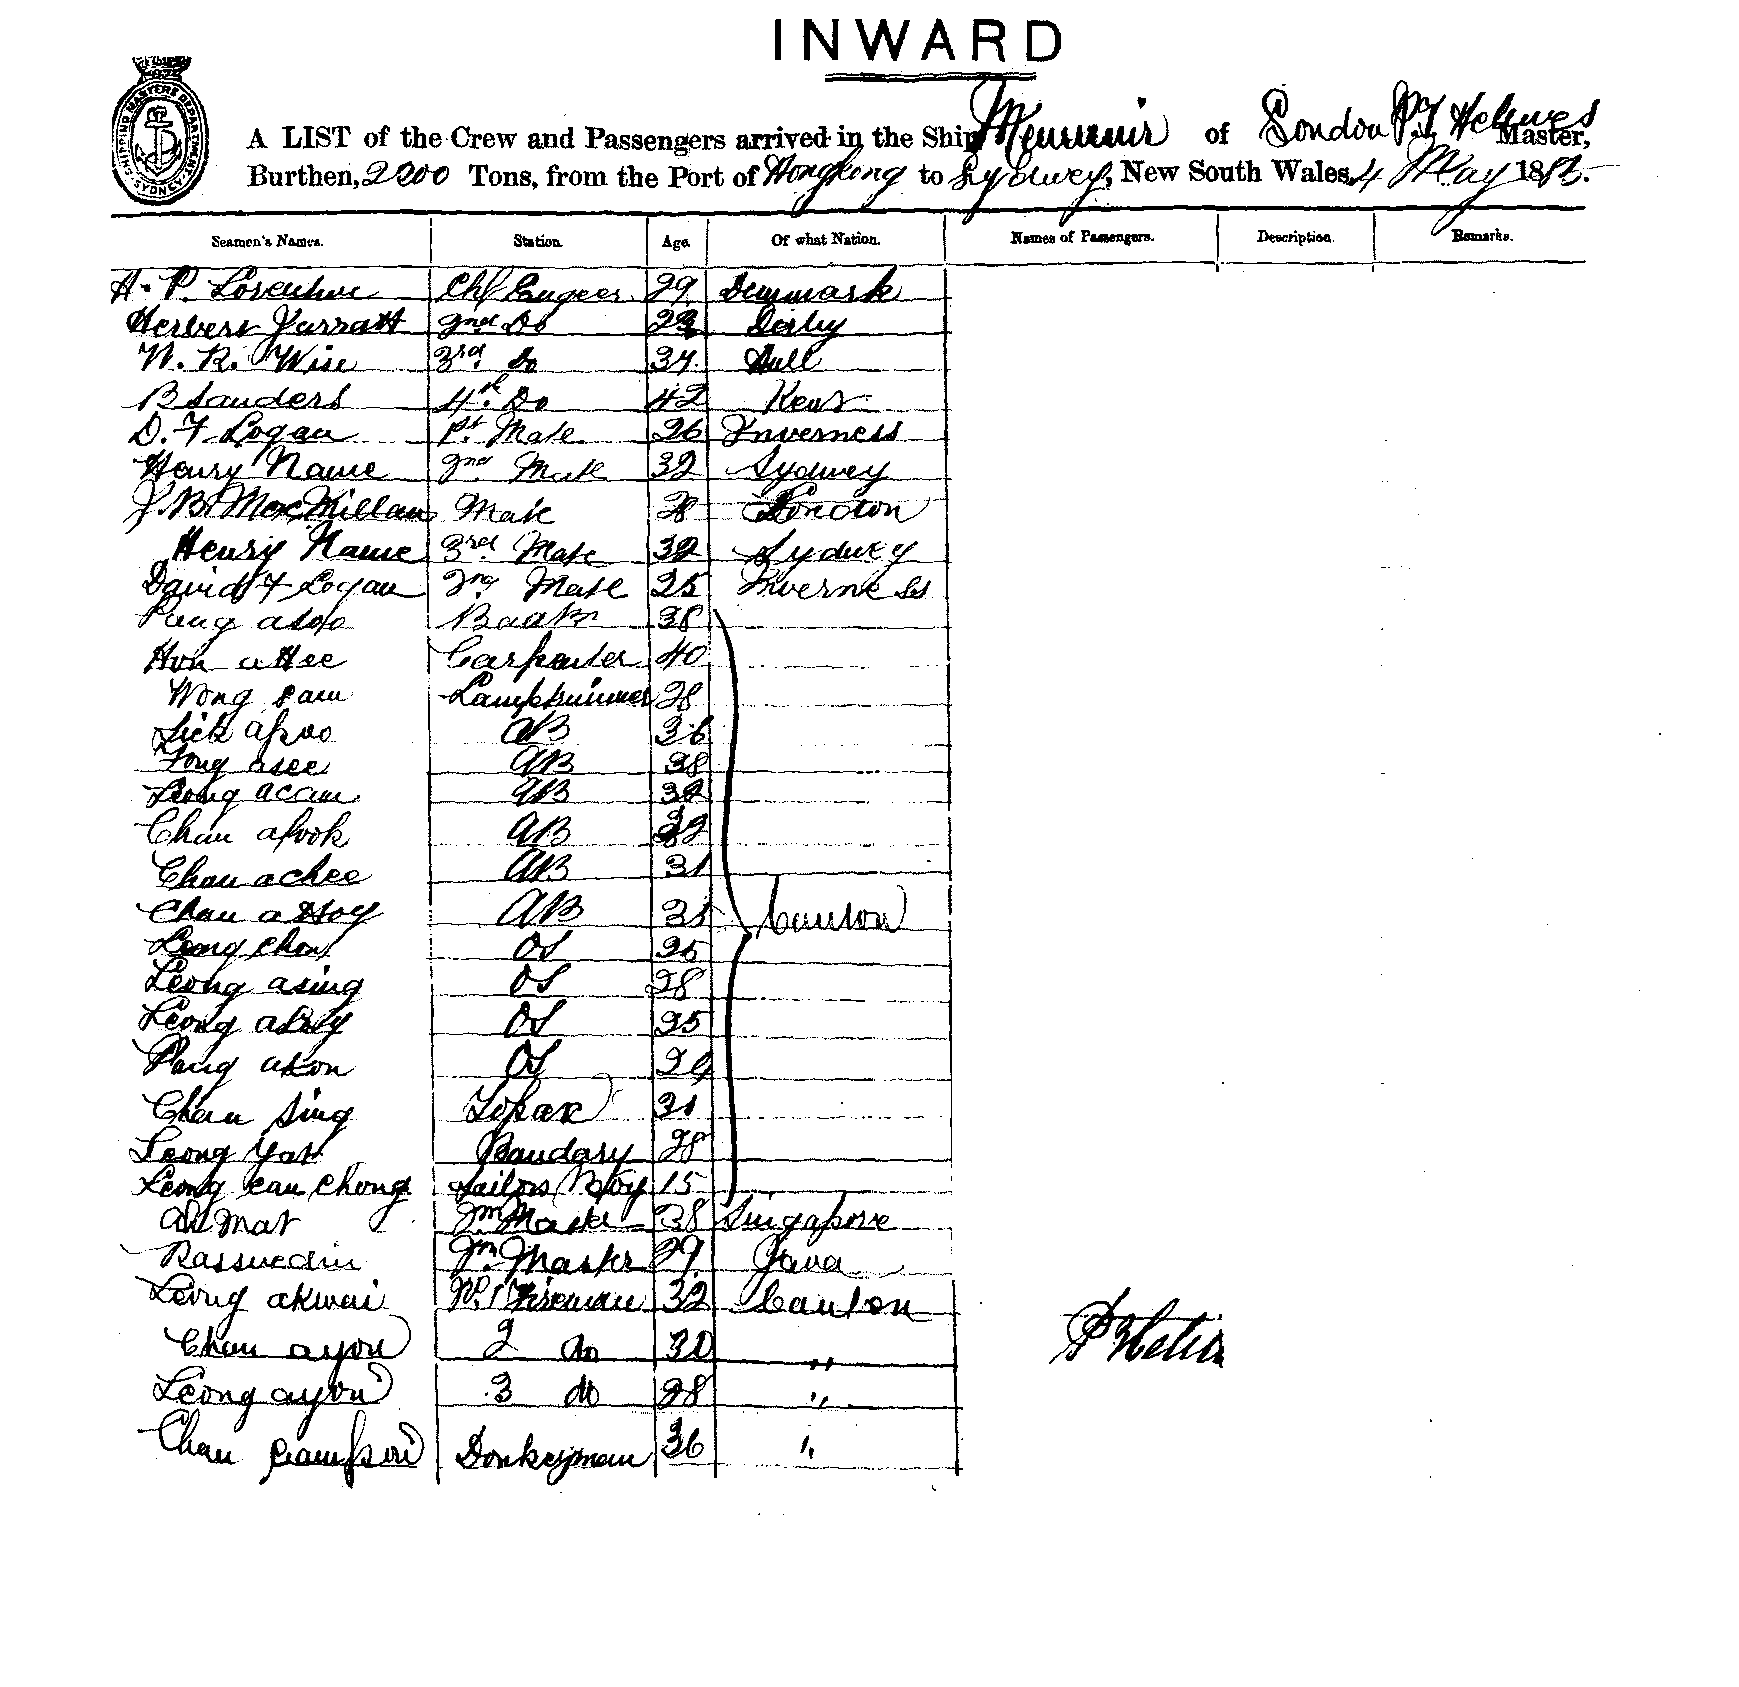 INWARD
SHIPPING MASTERS DEPARTMENT SYDNEY
A LIST of the Crew and Passengers arrived in the Ship Menmuir of London P. Helmes Master,
Burthen, 2000 Tons, from the Port of Hongkong to Sydney, New South Wales, 4 May 188
Seamen's Names. Station. Age. Of what Nation. Names of Passengers. Description. Remarks.
H. P. Chf Engeer 29 Denmark
Herbert Jarratt 2nd Do 23 Derby
W. R. Wise 3rd Do 34 Hull
B Sanders 4th Do 42 Kent
D. F Logan 1st Mate 26 Inverness
Henry Name 2nd Mate 32 Sydney
J. B. MacMillan Mate 28 London
Henry Name 3rd Mate 32 Sydney
David F Logan 2nd Mate 25 Inverness
Pang 38
Hon a Hee Carpenter 40
Wong Sam Lamptrimmer 28
AB 36
Fong asee AB 38
Leong acam AB 32
Chan afook AB 32
Chan achee AB 31
Chan AB 35 Canton
Leong OS 25
Leong asing OS 28
Leong OS 25
Pang akon OS 29
Chan Sing 31
Leong Yat 28
Leong can chong Sailors Boy 15
Ah Mat 38 Singapore
Rassuedin 29 Java
Leong akwai No. 1 Fireman 32 Canton
Chan ayou 2 do 30 "
Leong ayou 3 do 28 "
Chan Donkeyman 36 "